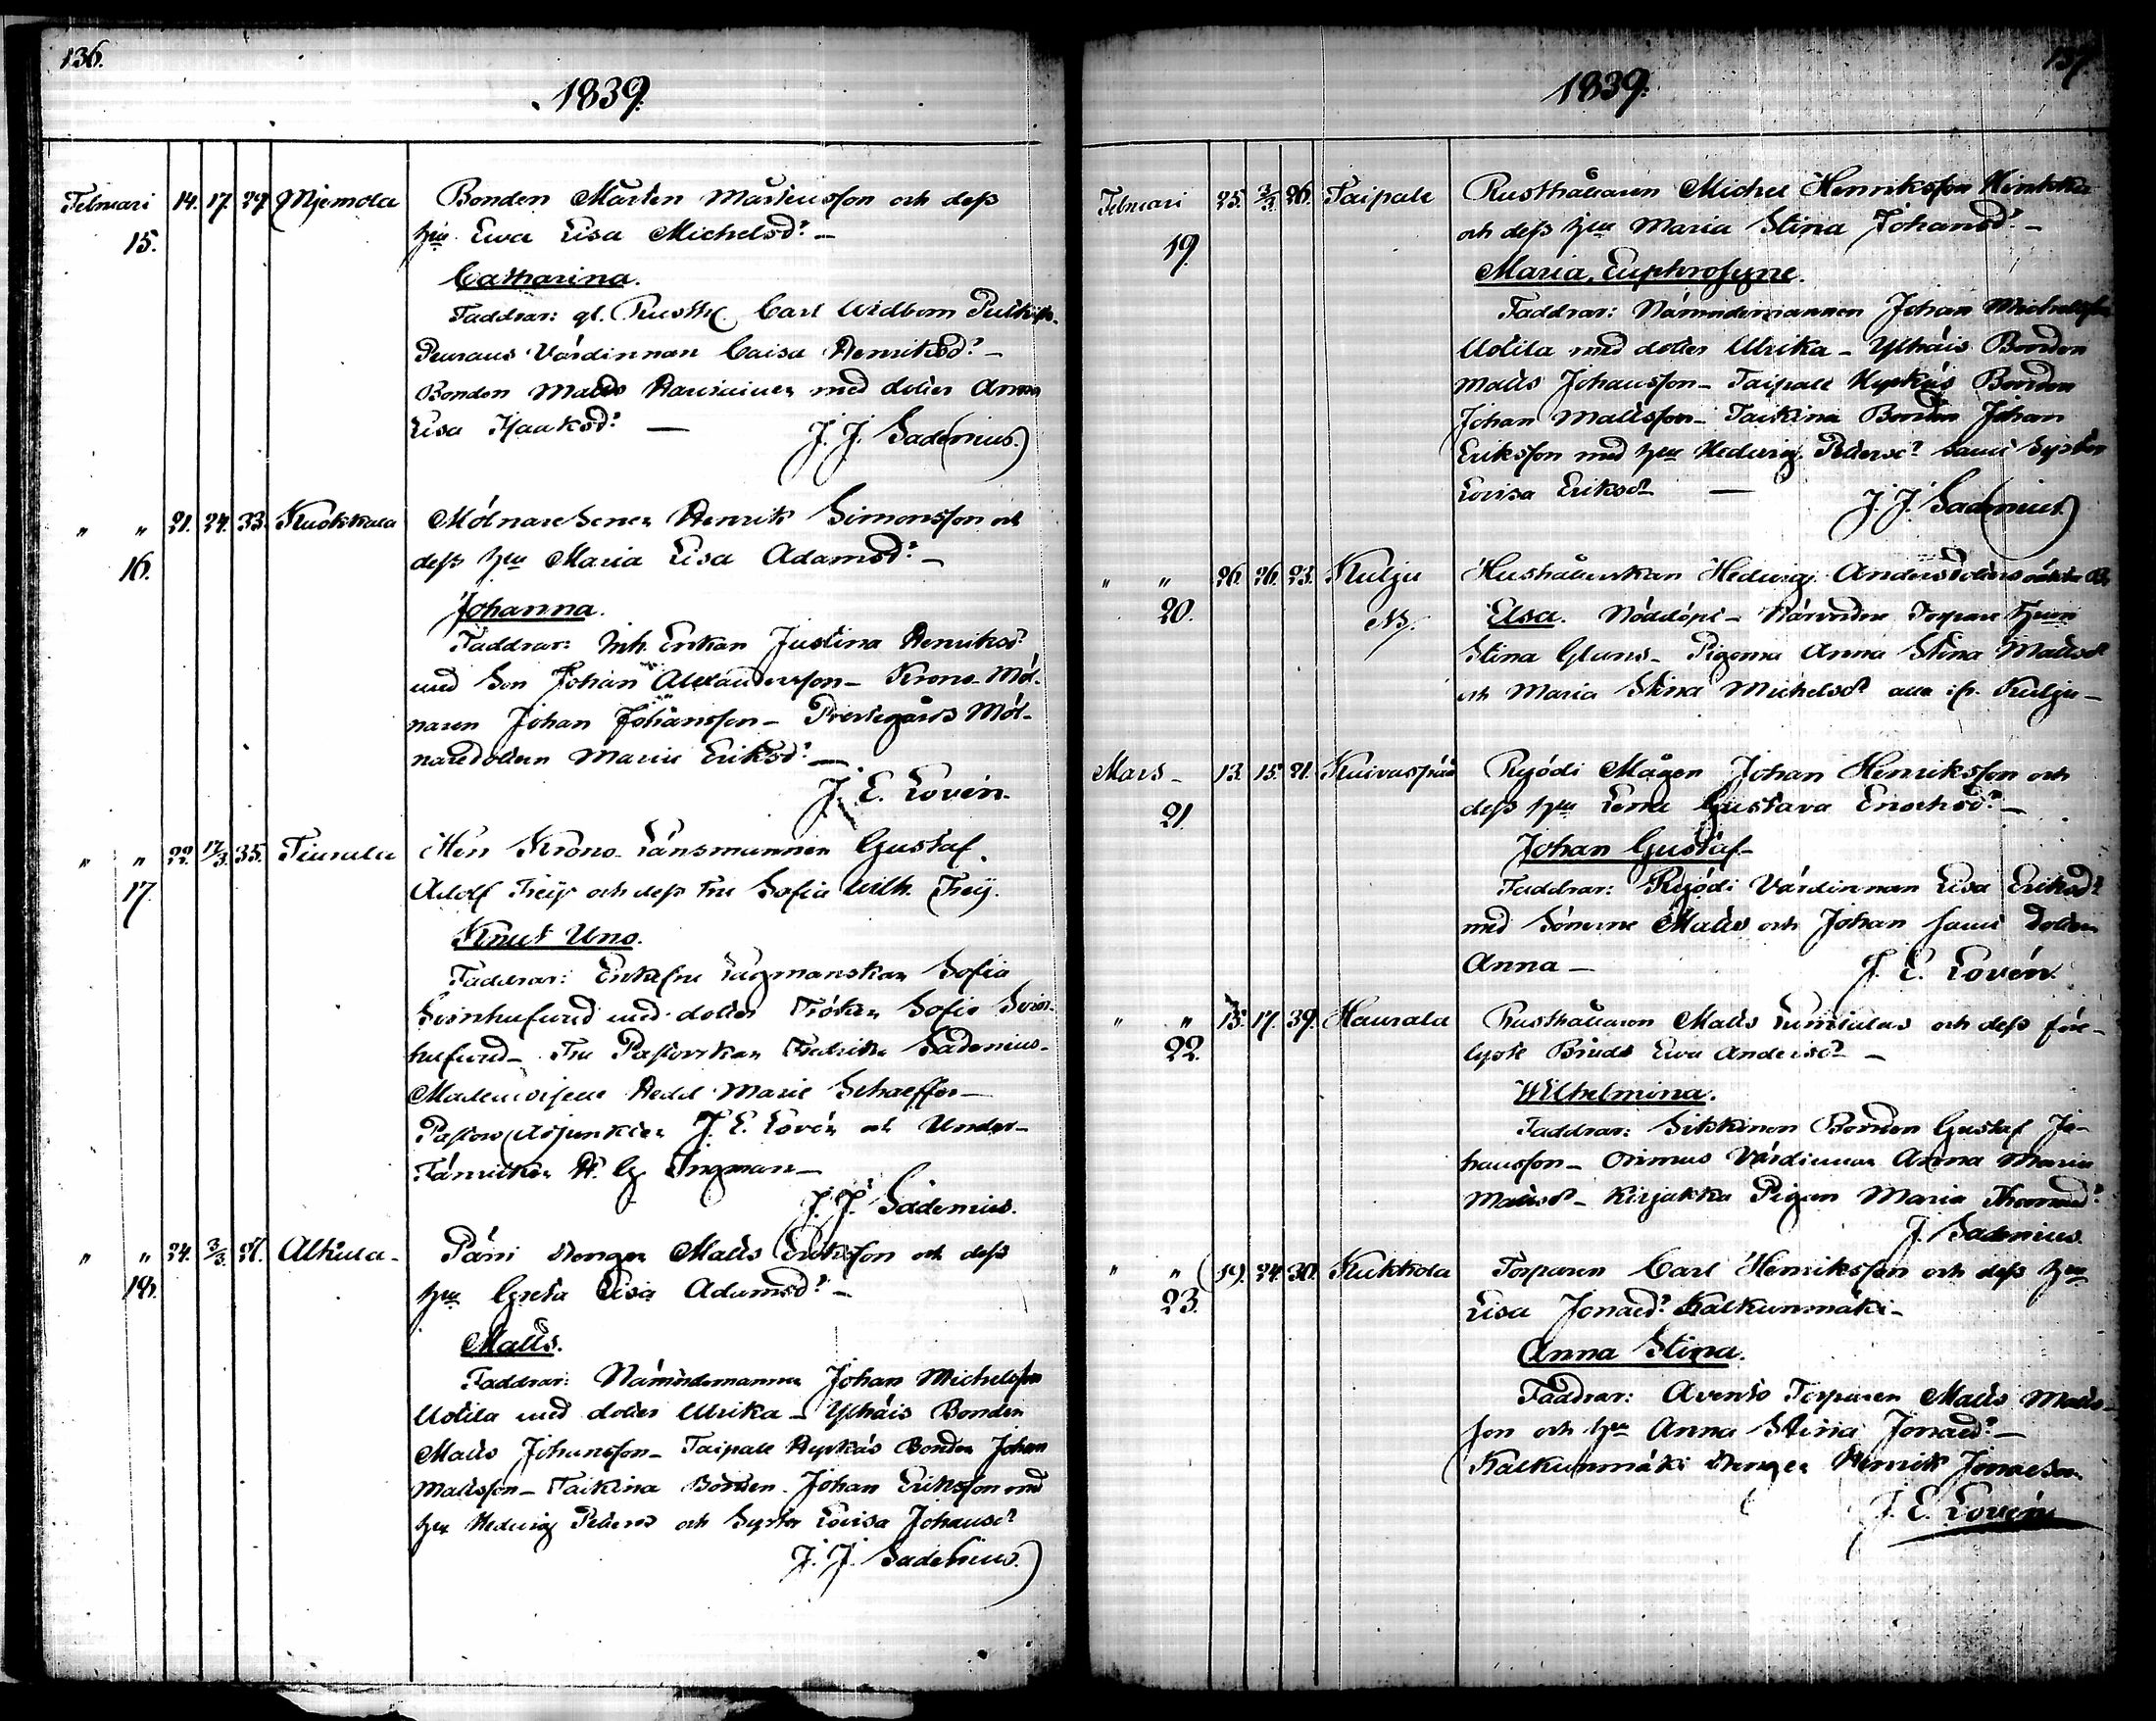 136.
1839.
Februari 14. 17. 29. Njemola Bonden Mårten Mårtensson och dess
15. hu Ewa Lisa Michelsdr –
Catharina.
Faddrar: gl. Rusth. Carl Widbom
Peuraus Värdinnan Caisa Henriksdr –
Bonden Matts med dotter Anna
Lisa Isaksdr — J. J. Sadenius.
" " 21. 24. 33. Kuokkala Mölnare Sonen Henrik Simonsson och
16. dess hu Maria Lisa Adamsdr –
Johanna.
Faddrar: Inh. Enkan Justina Henriksdr
med Son Johan Alexandersson – Krono Möl-
naren Johan Johansson – Prestegårds Möl-
naredottern Maria Eriksdr —
J. E. Lovén.
" " 22. 17/3. 35. Tiurala Herr Krono Länsmannen Gustaf
17. Adolf Freij och dess Fru Sofia Wilh. Freij.
Knut Uno.
Faddrar: Enkefru Lagmanskan Sofia
Svinhufvud med dotter Fröken Sofie Svin-
hufvud – Fru Pastorskan Fredrika Sadenius –
Mademoiselle Hedd Marie Schaeffer –
Pastors Adjunkten J. E. Lovén och Under-
Fänriken H. G. Ingman –
J. J. Sadenius.
" " 24. 3/3. 27. Alkula – Päni drengen Matts Eriksson och dess
18. hu Greta Lisa Adamsdr –
Matts.
Faddrar: Nämndemannen Johan Michelsson
Uotila med dotter Ulrika – Ylhäis Bonden
Matts Johansson – Taipale Hyrkäs Bonden Johan
Mattsson – Taikina Bonden Johan Eriksson med
hu Hedwig Petersd och Syster Lovisa Johansdr
J. J. Sadenius.
137.
1839.
Februari 25. 3/3. 26. Taipale Rusthållaren Michel Henriksson
19. och dess hu Maria Stina Johansdr –
Maria Euphrosyne.
Faddrar: Nämndemannen Johan Michelsson
Uotila med dotter Ulrika – Ylhäis Bonden
Matts Johansson – Taipale Hyrkäs Bonden
Johan Mattsson – Taikina Bonden Johan
Eriksson med hu Hedwig Petersdr samt Syster
Lovisa Eriksdr — J. J. Sadenius.
" " 26. 26. 23. Kulju Hushållerskan Hedwig Andersdotters oäkta B.
20. NB. Elsa. Nöddöpt – Närvarde Torpare hun
Stina Glans – Pigorna Anna Stina Mattsdr
och Maria Stina Michelsdr alla ifr. Kulju –
Mars – 13. 15. 21. Kuivaspää Ryödi Mågen Johan Henriksson och
21. dess hu Lena Gustava Enochsdr –
Johan Gustaf –
Faddrar: Ryödi Värdinnan Lisa Eriksdr
med Sönerne Matts och Johan samt dotter
Anna – J. E. Lovén.
" " 15. 17. 39. Haurala Rusthållaren Matts och dess för-
22. lyste Brud Ewa Andersdr –
Wilhelmina.
Faddrar: Sikkinen Bonden Gustaf Jo-
hansson – Orimus Värdinnan Anna Maria
Mattsdr – Kirjakka Pigan Maria
J. Sadenius.
" " 19. 24. 30. Kukkola Torparen Carl Henriksson och dess hu
23. Lisa Jonædr Kalkunmäki –
Anna Stina.
Faddrar: Avento Torparen Matts Matts-
son och hu Anna Stina Jonædr –
Kalkunmäki drengen Henrik Jonæson
J. E. Lovén